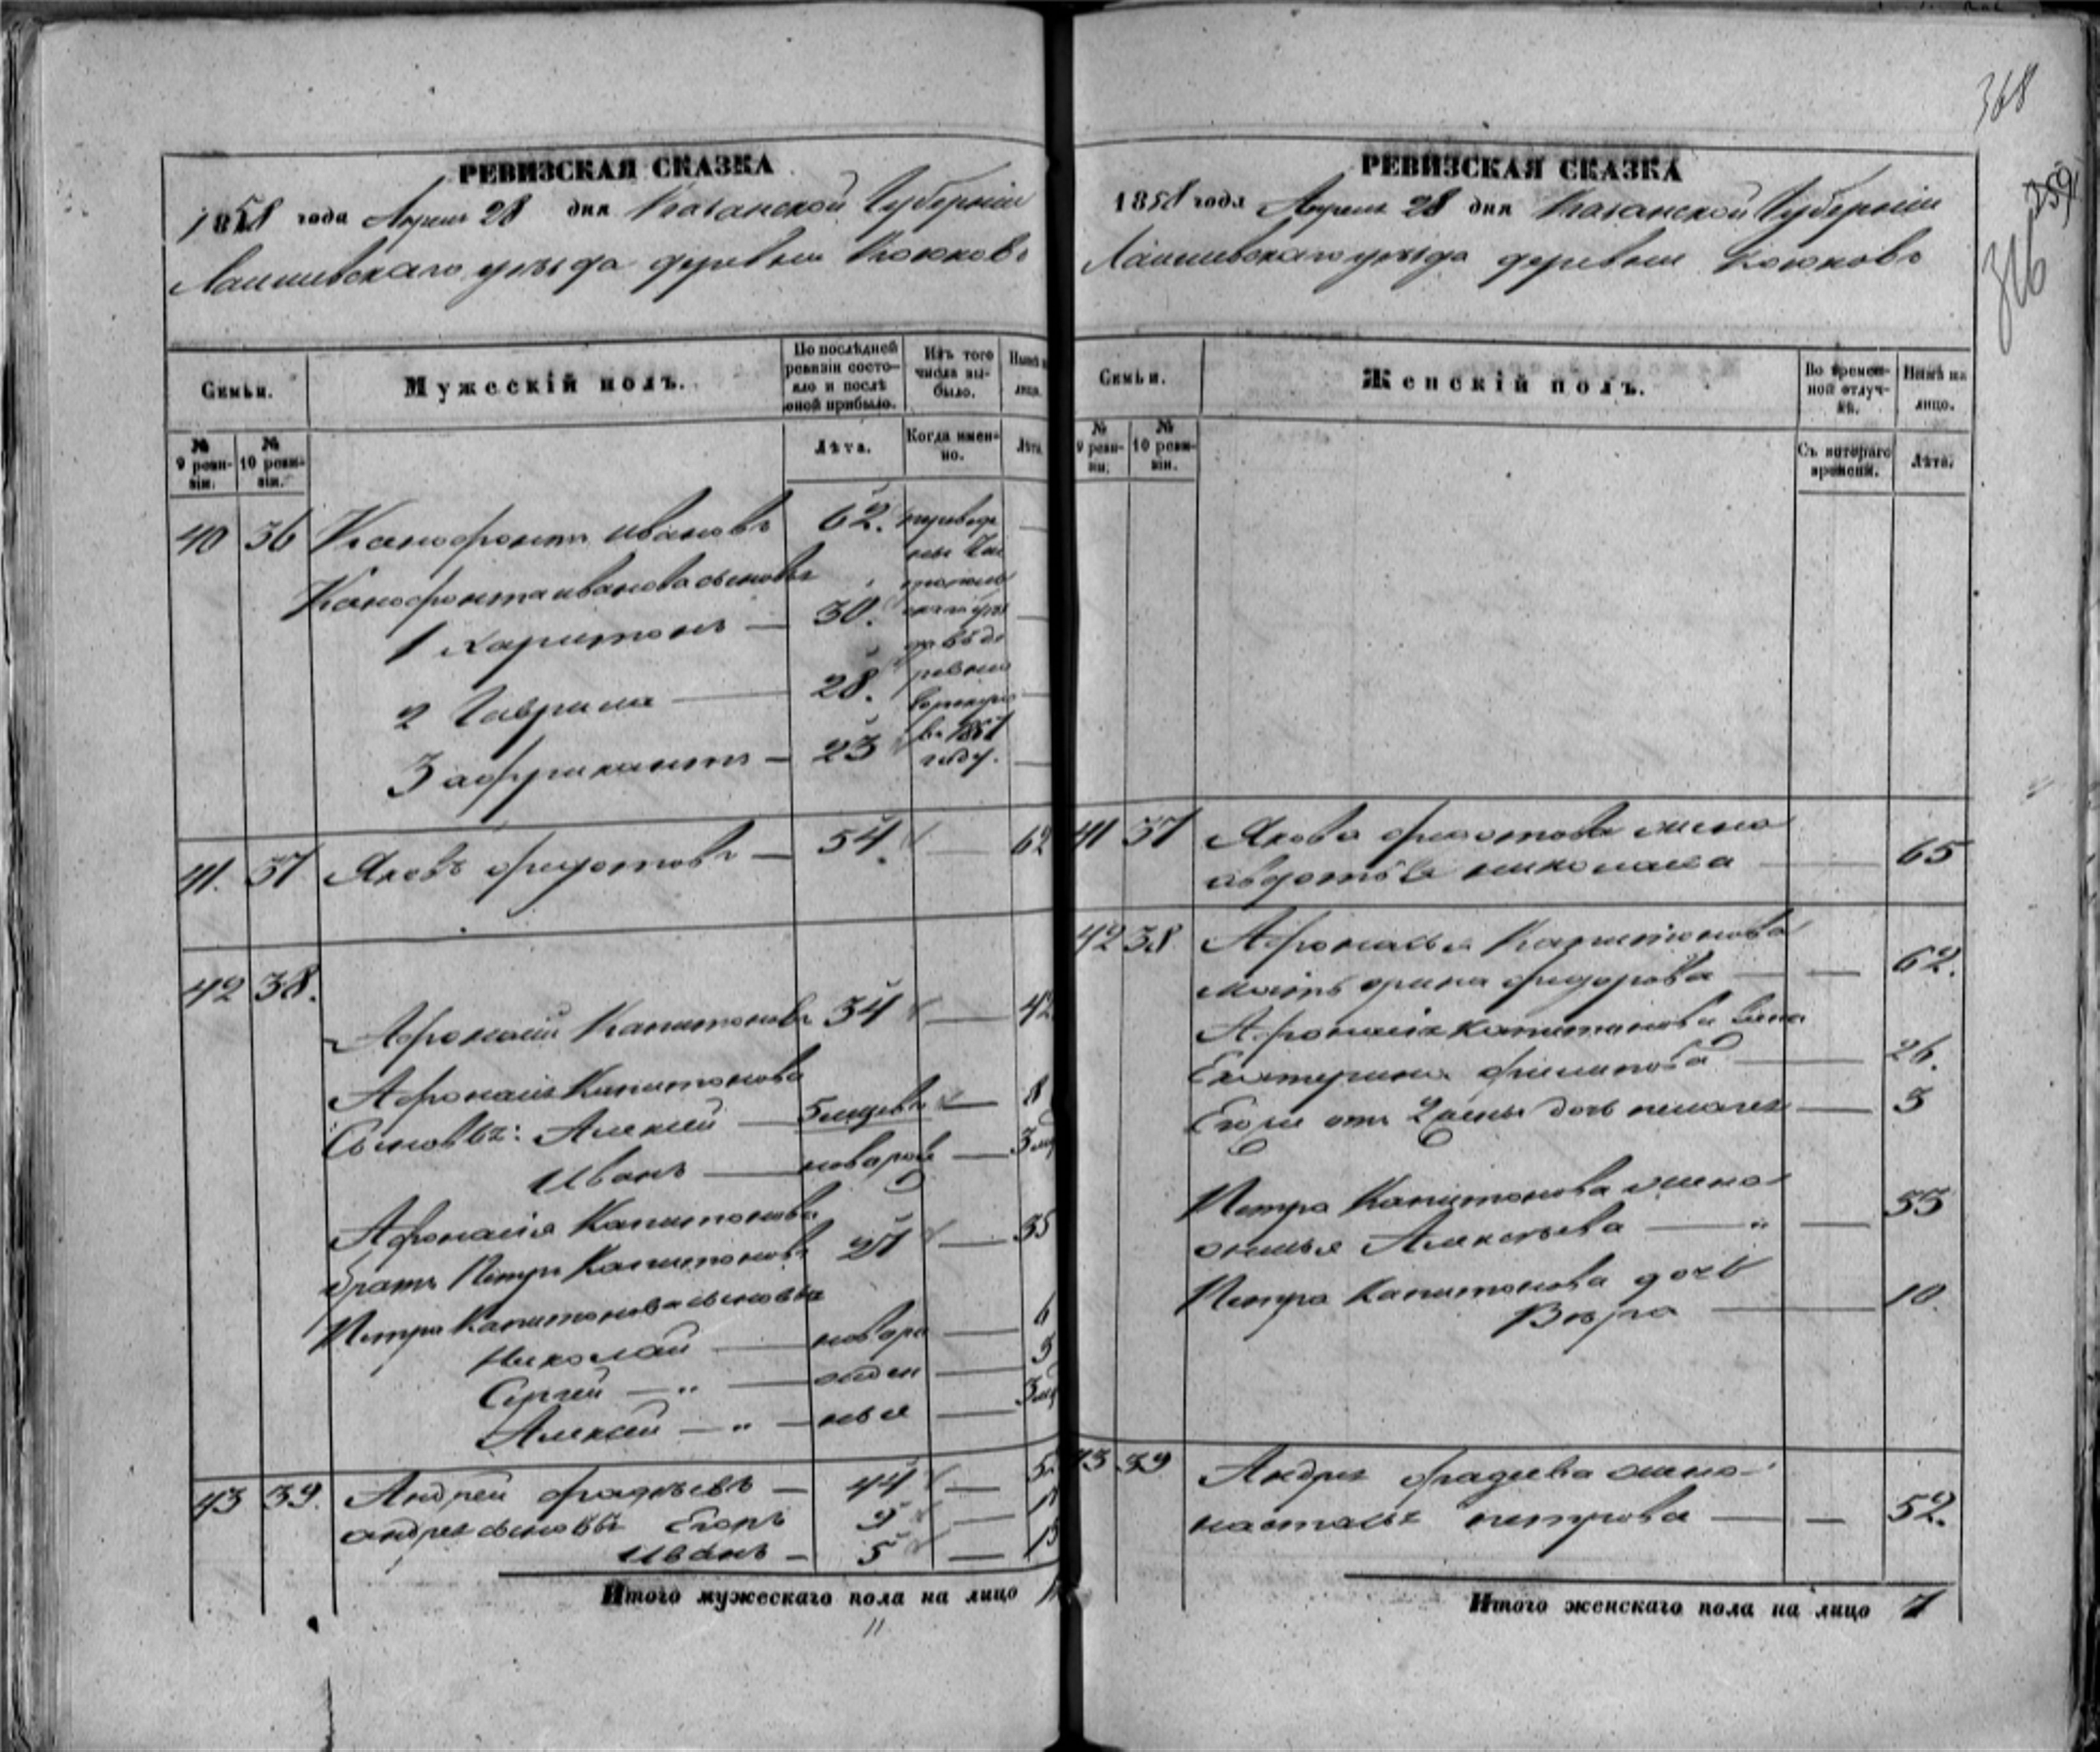 368
259
316
РЕВИЗСКАЯ СКАЗКА
1858 года Апреля 28 дня Казанской Губернии
Лаишевскаго уезда деревни Коюковъ
Семьи.
Мужескій полъ.
По послѣдней ревизіи состояло и послѣ оной прибыло.
Изъ того числа выбыло.
Нынѣ лица.
№ 9 ревизіи.
№ 10 ревизіи.
Лѣта.
Когда именно.
Лѣта.
40 36 Ксенофонтъ Ивановъ 62. переведены
Ксенофонта Иванова сыновья
1 Харитонъ — 30.
2 Гаврила — 28. деревню
3 Африкантъ — 23 в 1851 году.
41. 37 Яковъ Федотовъ — 54. — 62
42 38.
Афонасий Капитоновъ 34 — 42
Афонасия Капитонова
Сыновья: Алексей — 5 недель — 8
Иванъ — новорож — 3 мц
Афонасия Капитонова
братъ Петръ Капитоновъ 27 — 35
Петра Капитонова сыновья
Николай — новоро — 6
Сергей — " — жден — 3
Алексей — " — ные — 3 мц
43 39. Андрей Фадеевъ — 44 — 5
Андрея сыновья Егоръ 9 — 1
Иванъ — 5 — 13
Итого мужескаго пола на лицо 11
11
РЕВИЗСКАЯ СКАЗКА
1858 года Апреля 28 дня Казанской Губернии
Лаишевскаго уезда деревни Коюковъ
Семьи.
Женскій полъ.
Во временной отлучкѣ.
Нынѣ на лицо.
№ 9 ревизіи.
№ 10 ревизіи.
Съ котораго времени.
Лѣта.
41 37 Якова Федотова жена
Авдотья Николаева — 65
42 38 Афонасья Капитонова
мать Орина Федорова — — 62.
Афонасия Капитонова жена
Екатерина Филипова — 26.
Его же отъ 2 жены дочь Пелагея — 3
Петра Капитонова жена
Акилина Алексеева — " — 33
Петра Капитонова дочь
Вера — 10.
43 39 Андрея Фадеева жена
Настасья Петрова — — 52.
Итого женскаго пола на лицо 7